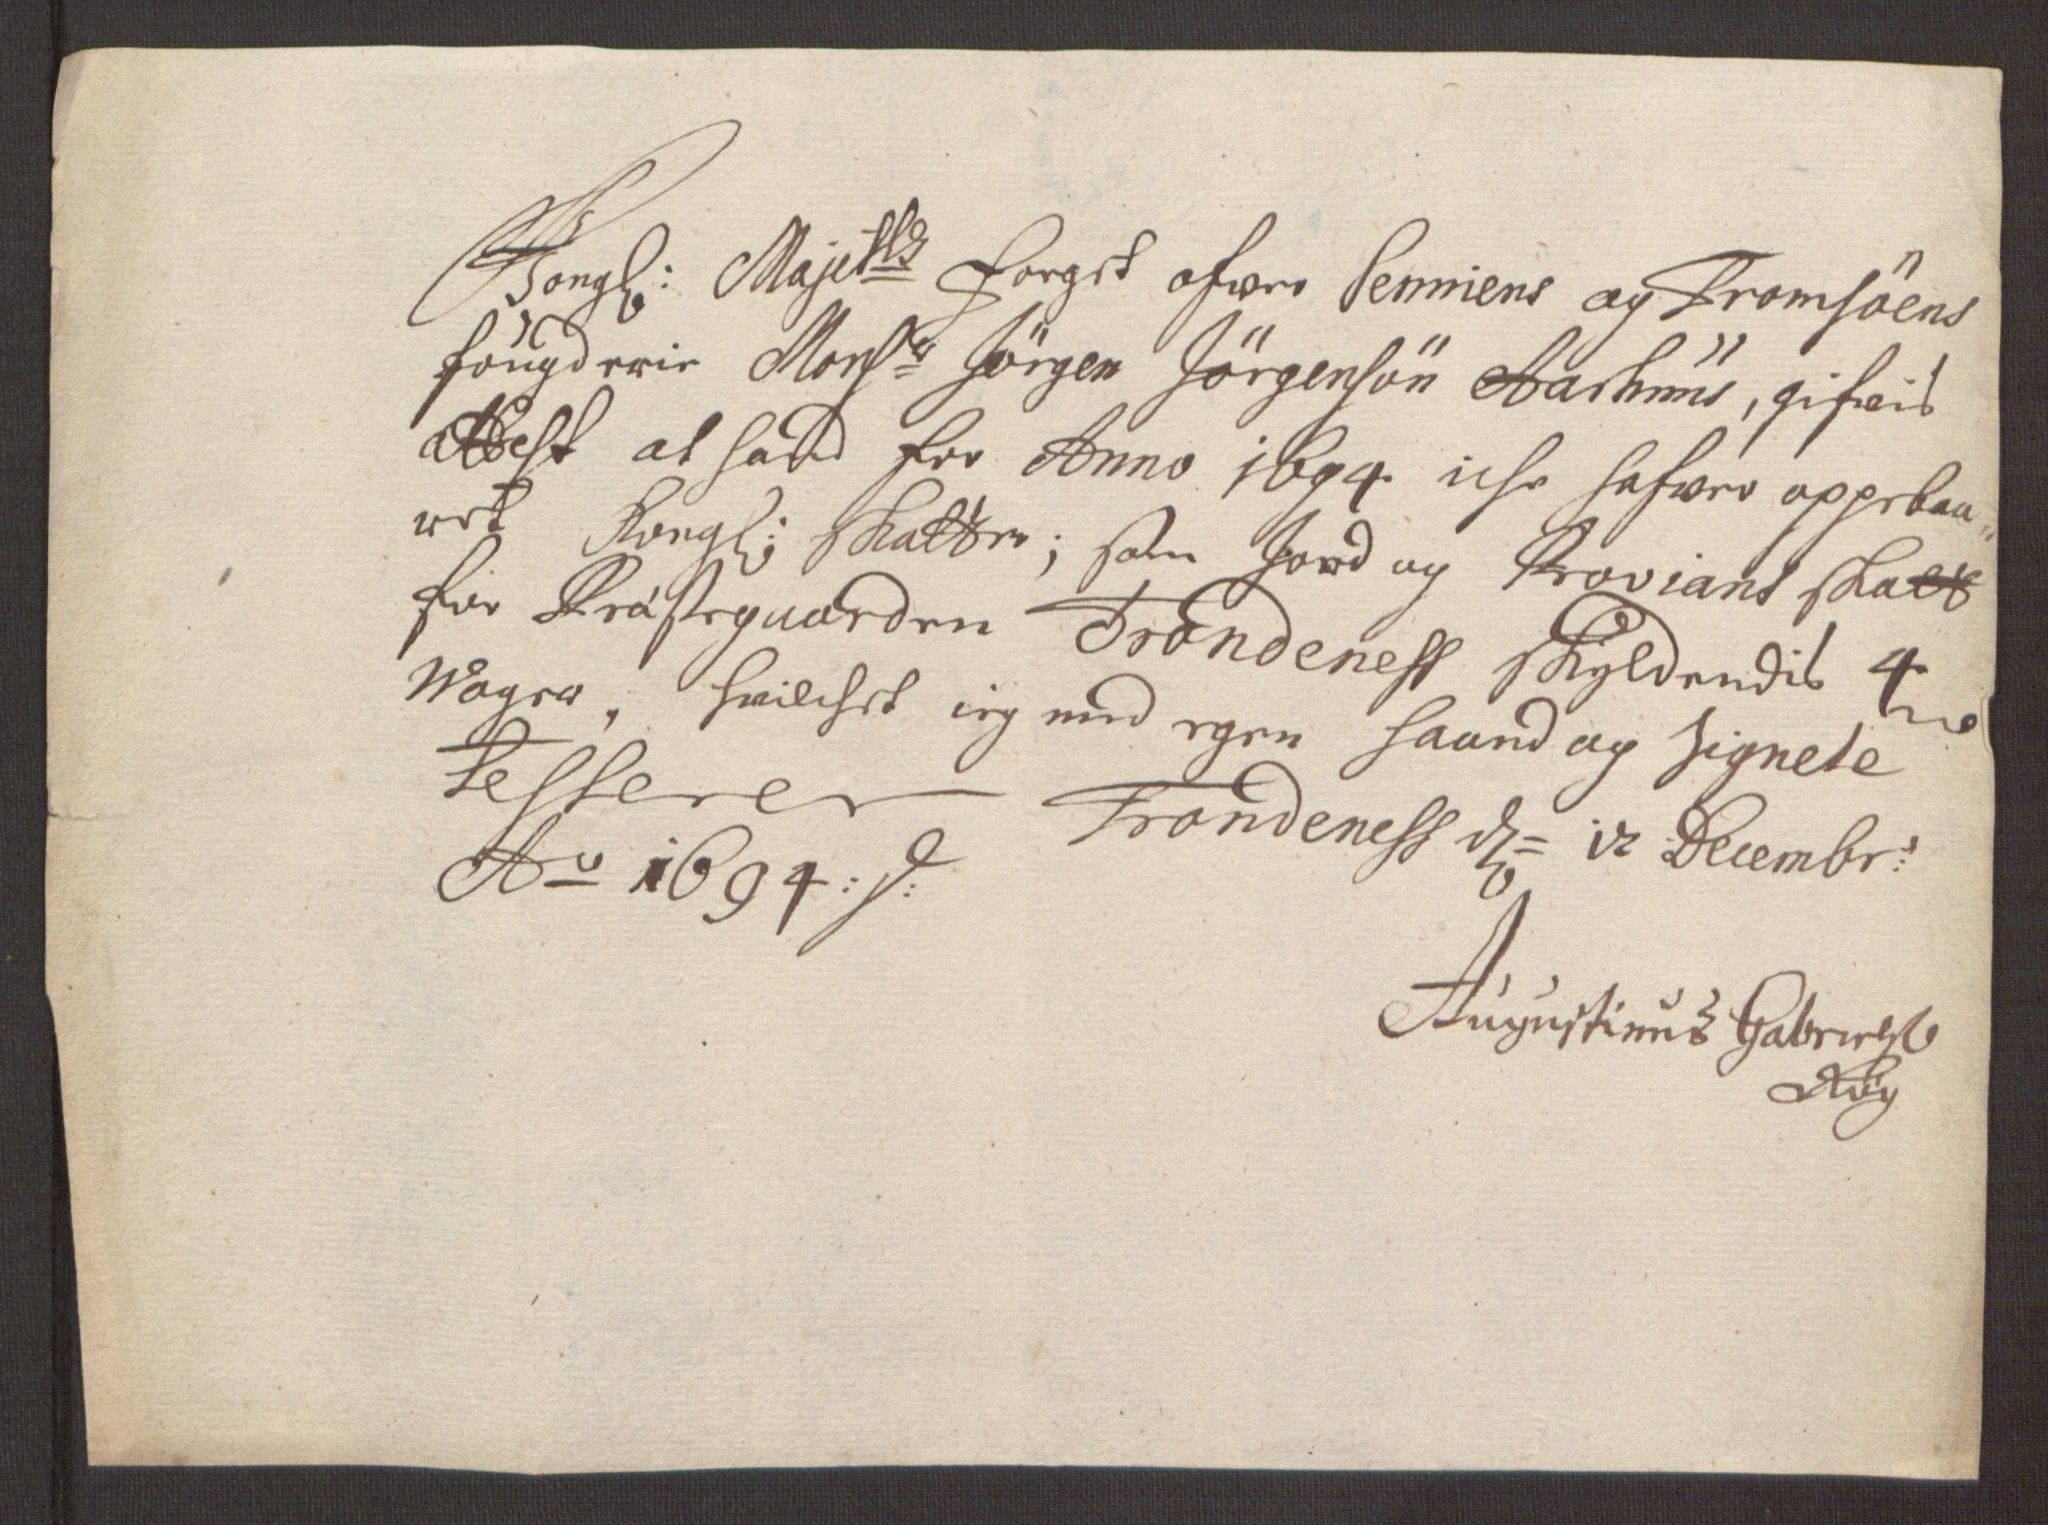 Kongl: Majetts Foget ofver Senniens og Tromsöens
fougderie Monsr Jörgen Jörgensön Aarhuus, gifvis
Attest at hand for Anno 1694 iche hafver oppebaa„
ret Kongl: skatter; som Jord og Proviant skatt
for Præstegaarden Trondeness skyldendis 4
Woger, hvilchet ieg med egen haand og Signete
Testerer Trondeness dn 12 Decembr:
Ao 1694:
Augustinus Gabrielss
Rög